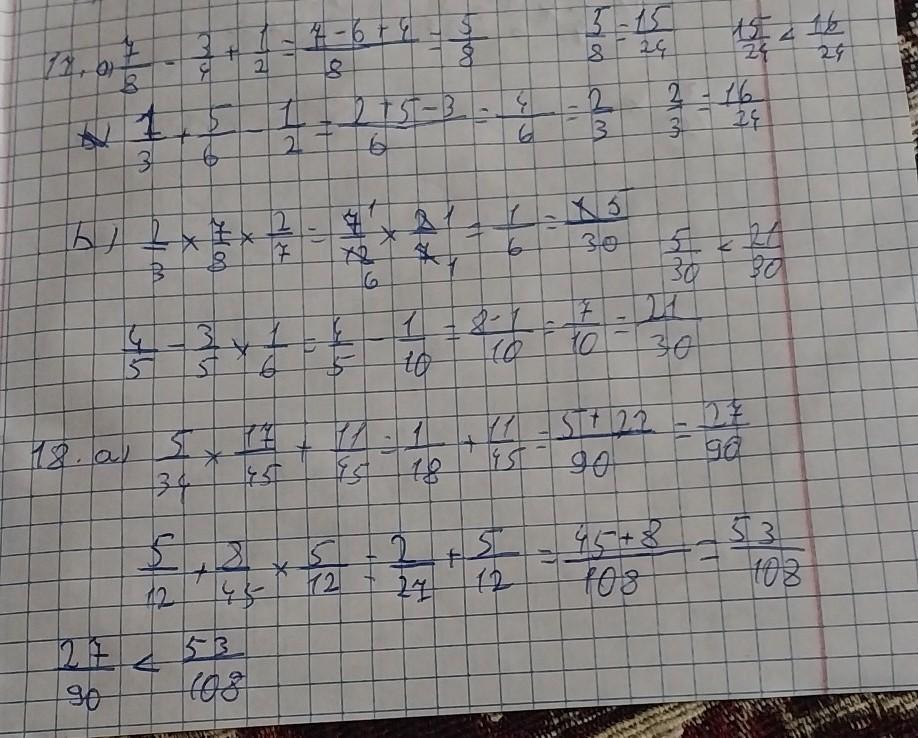 17. a) 7/8 - 3/4 + 1/2 = 7-6+4/8 = 5/8 5/8 = 15/24 15/24 < 16/24
1/3 + 5/6 - 1/2 = 2+5-3/6 = 4/6 = 2/3 2/3 = 16/24
b) 2/3 × 7/8 × 2/7 = 7 1/12 6 × 2 1/7 1 = 1/6 = 5/30 5/30 < 21/30
4/5 - 3/5 × 1/6 = 4/5 - 1/10 = 8-1/10 = 7/10 = 21/30
18. a) 5/34 × 17/45 + 11/45 = 1/18 + 11/45 = 5+22/90 = 27/90
5/12 + 8/45 × 5/12 = 2/27 + 5/12 = 45+8/108 = 53/108
27/90 < 53/108